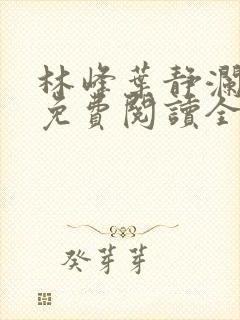 林峰葉靜瀾
免費閱讀全
癸芽芽